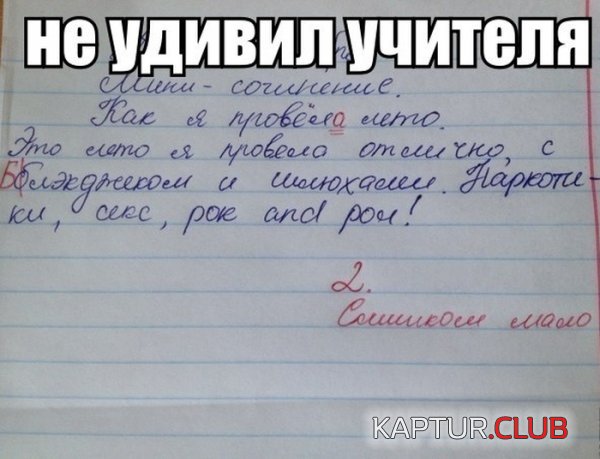 не удивил учителя
Мини-сочинение.
Как я провёла лето.
Это лето я провела отлично, с
Бблэкджеком и шлюхами. Наркоти-
ки, секс, рок and рол!
2.
Слишком мало
KAPTUR.CLUB